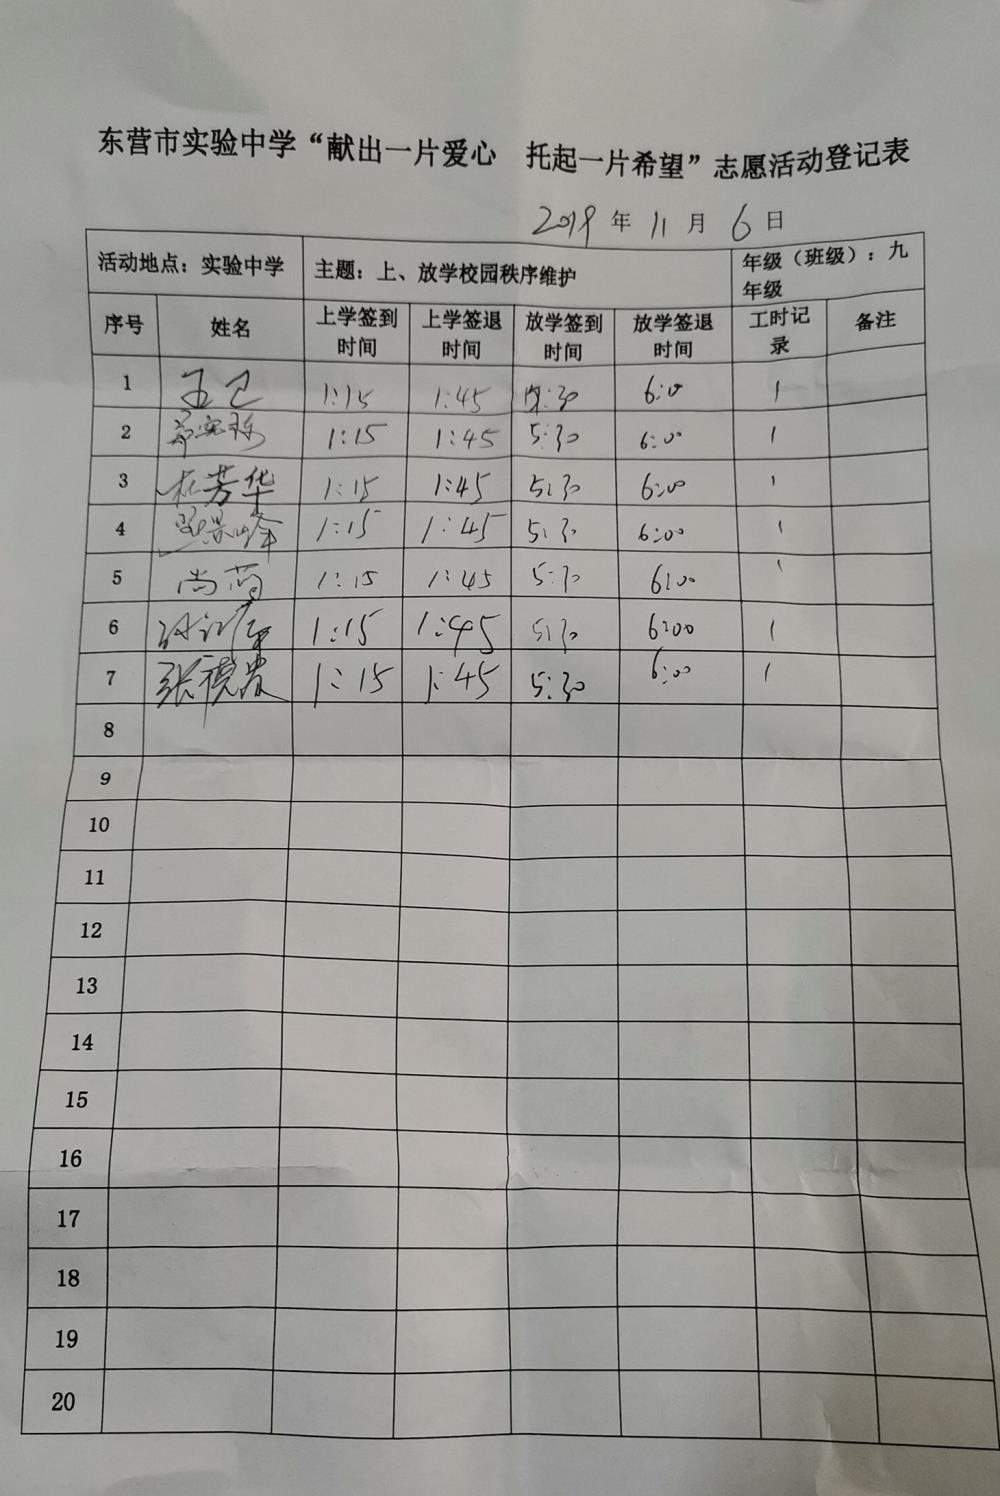 东营市实验中学“献出一片爱心 托起一片希望”志愿活动登记表
2019 年 11 月 6 日
活动地点：实验中学 主题：上、放学校园秩序维护 年级（班级）：九年级
序号 姓名 上学签到时间 上学签退时间 放学签到时间 放学签退时间 工时记录 备注
1 王卫 1:15 1:45 5:30 6:0 1
2 1:15 1:45 5:30 6:00 1
3 杜芳华 1:15 1:45 5:30 6:00 1
4 1:15 1:45 5:30 6:00 1
5 尚 1:15 1:45 5:30 6:00 1
6 1:15 1:45 5:30 6:00 1
7 张 1:15 1:45 5:30 6:00 1
8
9
10
11
12
13
14
15
16
17
18
19
20